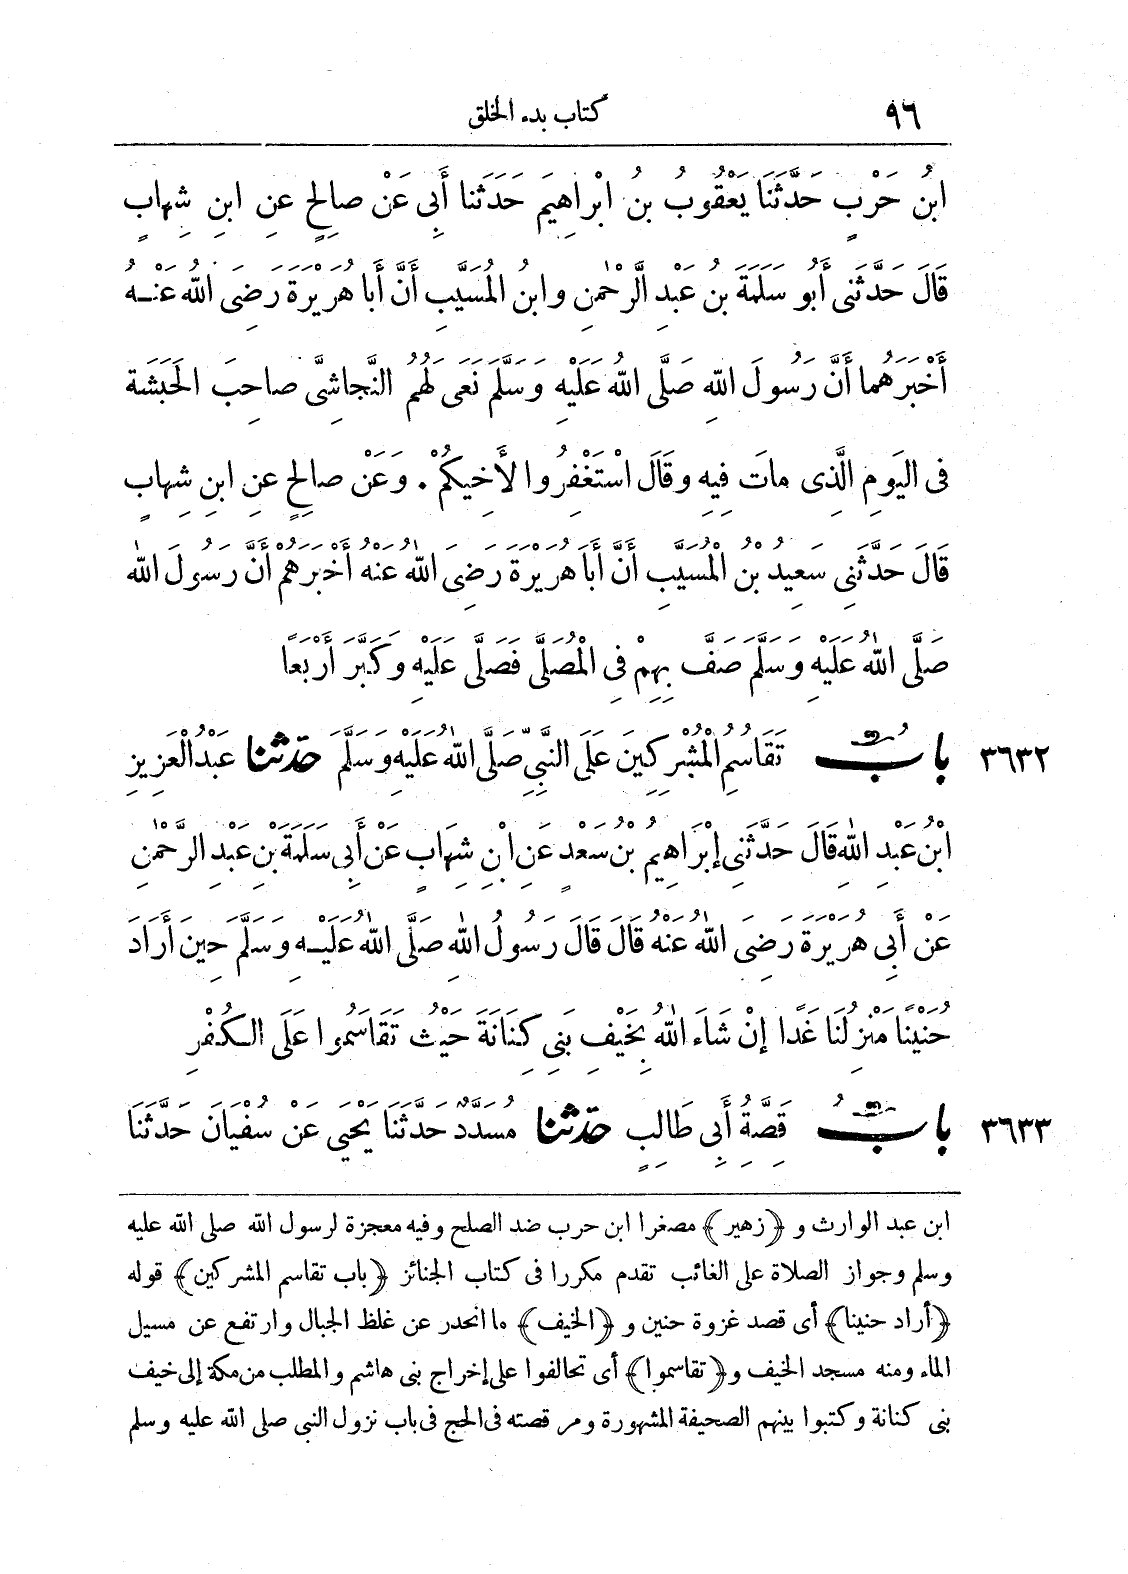 ٩٦ كتاب بدء الخلق
ابنُ حَرْبٍ حَدَّثَنَا يَعْقُوبُ بنُ إبْراهِيمَ حَدَثَنا أَبِى عَنْ صالِحٍ عنِ ابنِ شِهابٍ
قالَ حَدَّثَنِى أَبُو سَلَمَةَ بنُ عَبْدِ الرَّحْمٰنِ وابنُ المُسَيَّبِ أَنَّ أَبا هُرَيْرَةَ رَضِىَ اللهُ عَنْهُ
أَخْبَرَهُما أَنَّ رَسُولَ اللهِ صَلَّى اللهُ عَلَيْهِ وَسَلَّمَ نَعَى لَهُمُ النَّجاشِىَّ صاحِبَ الحَبَشَةِ
فى اليَوْمِ الَّذِى ماتَ فِيهِ وقَالَ اسْتَغْفِرُوا لأَخِيكُمْ . وَعَنْ صالِحٍ عنِ ابنِ شِهابٍ
قَالَ حَدَّثَنِى سَعِيدُ بْنُ الْمُسَيَّبِ أَنَّ أَبا هُرَيْرَةَ رَضِىَ اللهُ عَنْهُ أَخْبَرَهُمْ أَنَّ رَسُولَ اللهِ
صَلَّى اللهُ عَلَيْهِ وَسَلَّمَ صَفَّ بِهِمْ فِى الْمُصَلَّى فَصَلَّى عَلَيْهِ وَكَبَّرَ أَرْبَعاً
٣٦٣٢ بابُ تَقَاسُمِ الْمُشْرِكِينَ عَلَى النَّبِىِّ صَلَّى اللهُ عَلَيْهِ وَسَلَّمَ حدّثنا عَبْدُ الْعَزِيزِ
ابْنُ عَبْدِ اللهِ قَالَ حَدَّثَنِى إِبْرَاهِيمُ بْنُ سَعْدٍ عَنِ ابْنِ شِهَابٍ عَنْ أَبِى سَلَمَةَ بْنِ عَبْدِ الرَّحْمٰنِ
عَنْ أَبِى هُرَيْرَةَ رَضِىَ اللهُ عَنْهُ قَالَ قَالَ رَسُولُ اللهِ صَلَّى اللهُ عَلَيْهِ وَسَلَّمَ حِينَ أَرَادَ
حُنَيْنًا مَنْزِلُنَا غَدًا إِنْ شَاءَ اللهُ بِخَيْفِ بَنِى كِنَانَةَ حَيْثُ تَقَاسَمُوا عَلَى الْكُفْرِ
٣٦٣٣ بابُ قِصَّةُ أَبِى طَالِبٍ حدّثنا مُسَدَّدٌ حَدَّثَنَا يَحْيَى عَنْ سُفْيَانَ حَدَّثَنَا
ابن عبد الوارث و ﴿زهير﴾ مصغرا ابن حرب ضد الصلح وفيه معجزة لرسول الله صلى الله عليه
وسلم وجواز الصلاة على الغائب تقدم مكررا فى كتاب الجنائز ﴿باب تقاسم المشركين﴾ قوله
﴿أراد حنينا﴾ أى قصد غزوة حنين و ﴿الخيف﴾ ما انحدر عن غلظ الجبال وارتفع عن مسيل
الماء ومنه مسجد الخيف و ﴿تقاسموا﴾ أى تحالفوا على إخراج بنى هاشم والمطلب من مكة إلى خيف
بنى كنانة وكتبوا بينهم الصحيفة المشهورة ومر قصته فى الحج فى باب نزول النبى صلى الله عليه وسلم